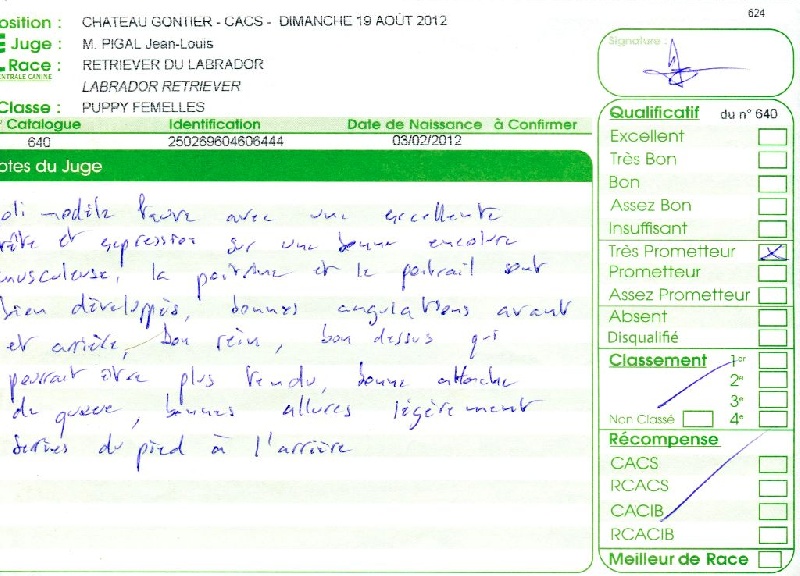 624
osition : CHATEAU GONTIER - CACS - DIMANCHE 19 AOÛT 2012
Juge : M. PIGAL Jean-Louis
Race : RETRIEVER DU LABRADOR
ENTRALE CANINE
LABRADOR RETRIEVER
Classe : PUPPY FEMELLES
° Catalogue Identification Date de Naissance à Confirmer
640 250269604606444 03/02/2012
otes du Juge
oli modèle fauve avec une excellente
tête et expression sur une bonne encolure
musculeuse, la poitrine et le poitrail sont
bien développés, bonnes angulations avant
et arrière, bon rein, bon dessus qui
pourrait être plus tendu, bonne attache
de queue, bonnes allures légèrement
serrées du pied à l'arrière
Signature :
Qualificatif du n° 640
Excellent
Très Bon
Bon
Assez Bon
Insuffisant
Très Prometteur
Prometteur
Assez Prometteur
Absent
Disqualifié
Classement 1er
2e
3e
Non Classé 4e
Récompense
CACS
RCACS
CACIB
RCACIB
Meilleur de Race